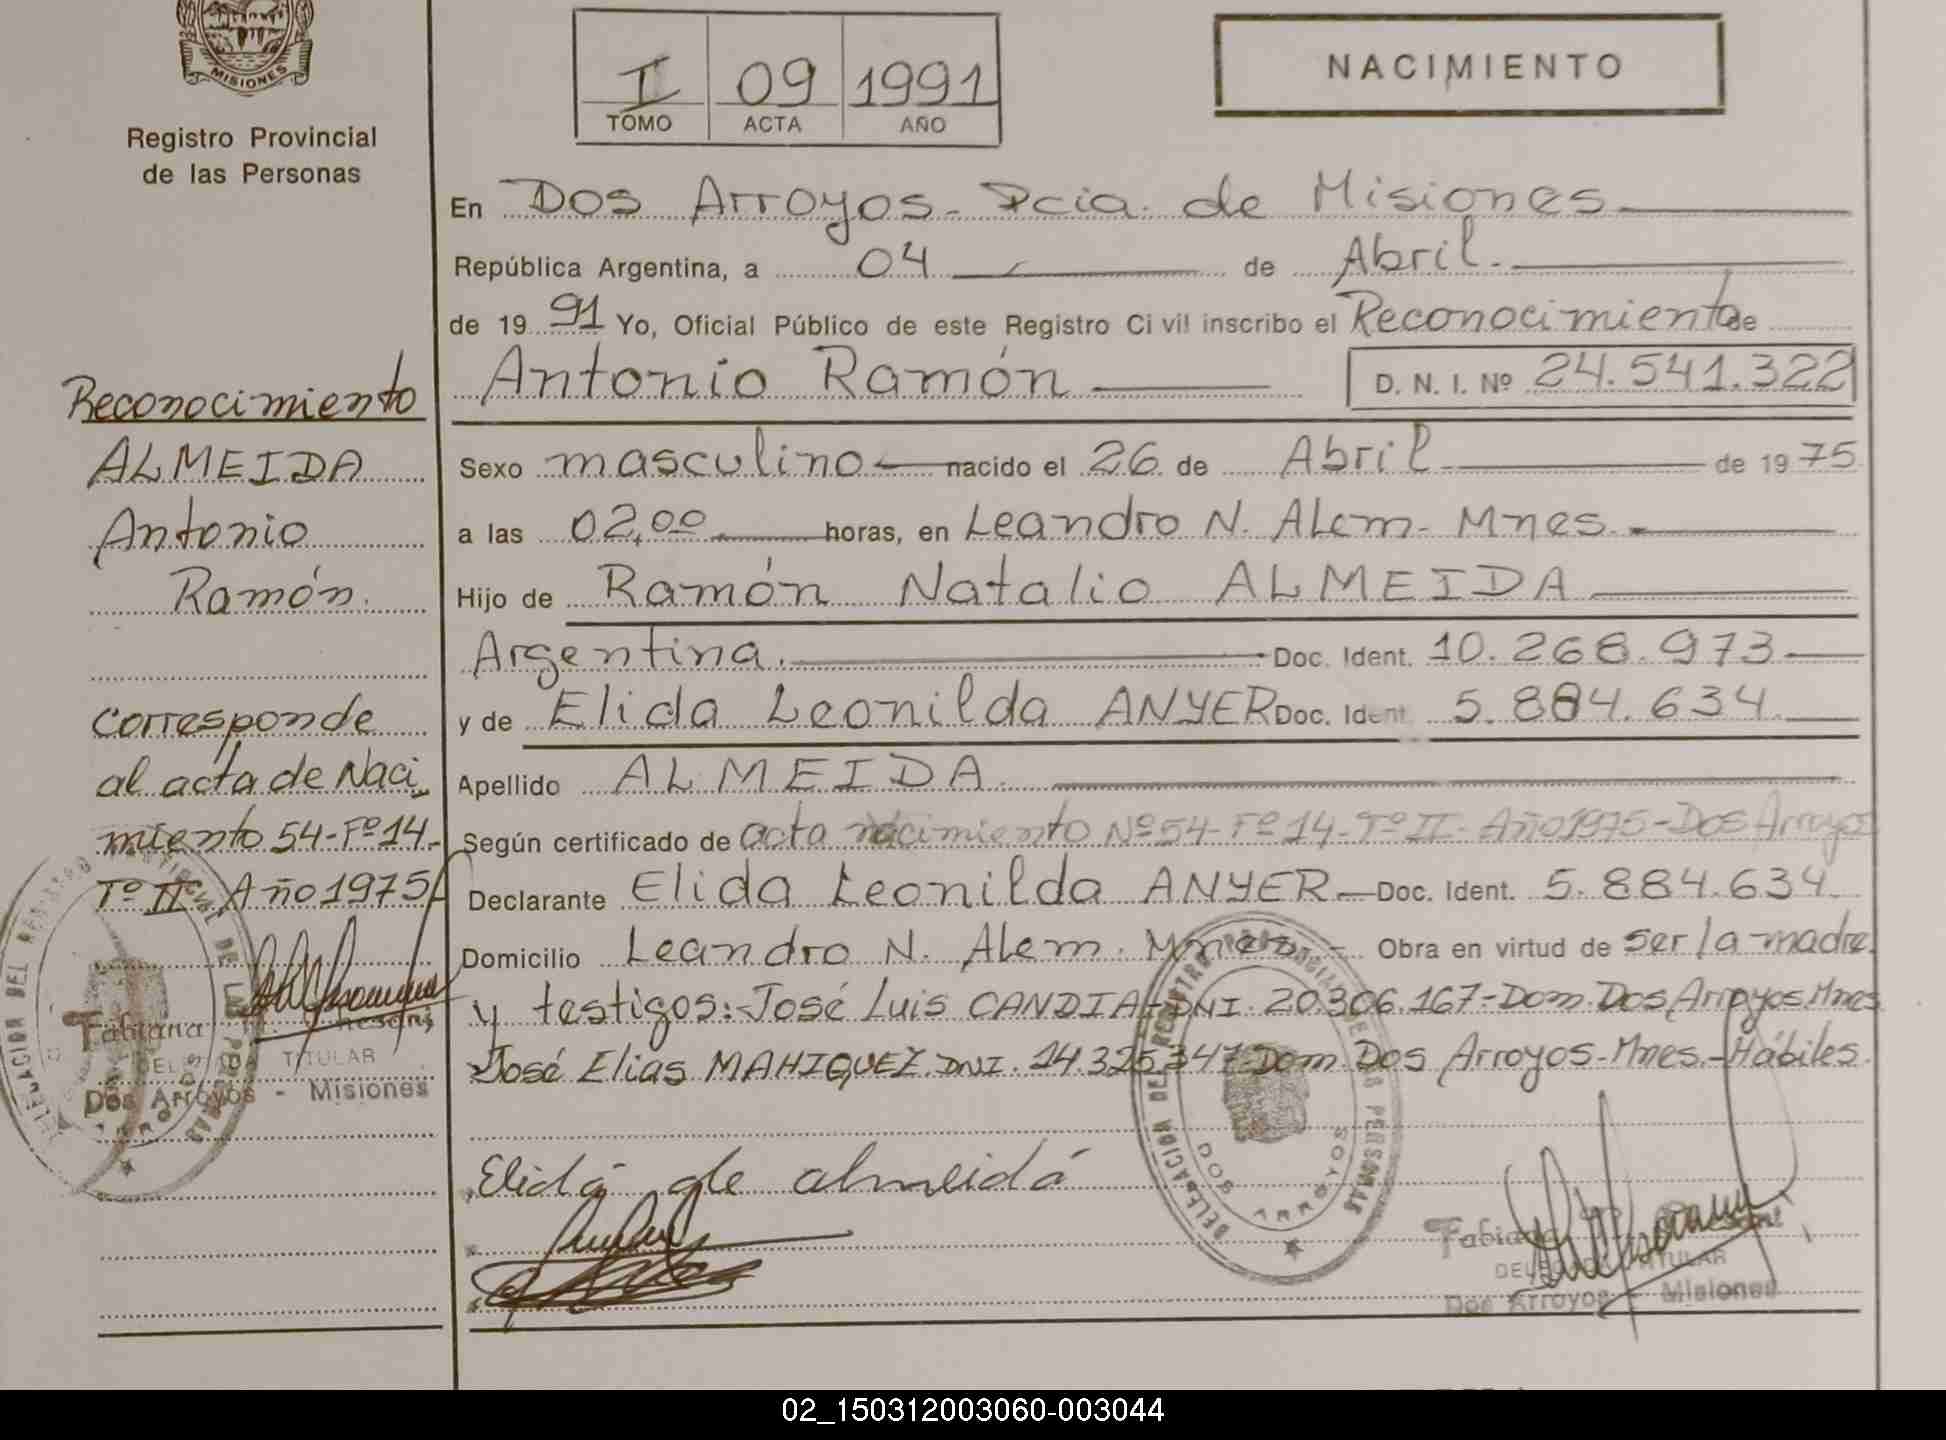 MISIONES
Registro Provincial
de las Personas
I 09 1991
TOMO ACTA AÑO
NACIMIENTO
En Dos Arroyos - Pcia. de Misiones
República Argentina, a 04 de Abril.
de 1991 Yo, Oficial Público de este Registro Civil inscribo el Reconocimiento de
Antonio Ramón D. N. I. Nº 24.541.322
Sexo masculino nacido el 26 de Abril de 1975
a las 02,00 horas, en Leandro N. Alem - Mnes.
Hijo de Ramón Natalio ALMEIDA
Argentina. Doc. Ident. 10.268.973
y de Elida Leonilda ANYER Doc. Ident. 5.884.634
Apellido ALMEIDA
Según certificado de acta nacimiento Nº 54-Fº 14-Tº II-Año 1975-Dos Arroyos
Declarante Elida Leonilda ANYER - Doc. Ident. 5.884.634
Domicilio Leandro N. Alem. Mnes. - Obra en virtud de ser la madre.
y testigos: José Luis CANDIA - DNI. 20.306.167-Dom. Dos Arroyos. Mnes
José Elias MAHIQUEZ. DNI. 14.325.347-Dom. Dos Arroyos-Mnes.-Hábiles.
Elida de almeida
Reconocimiento
ALMEIDA
Antonio
Ramón.
corresponde
al acta de Naci
miento 54-Fº 14.-
Tº II - Año 1975
Fabiana
TITULAR
Dos Arroyos - Misiones
DELEGACION DEL REGISTRO PROVINCIAL DE LAS PERSONAS
DOS ARROYOS
Fabiana
DELEGADA TITULAR
Dos Arroyos - Misiones
02_150312003060-003044